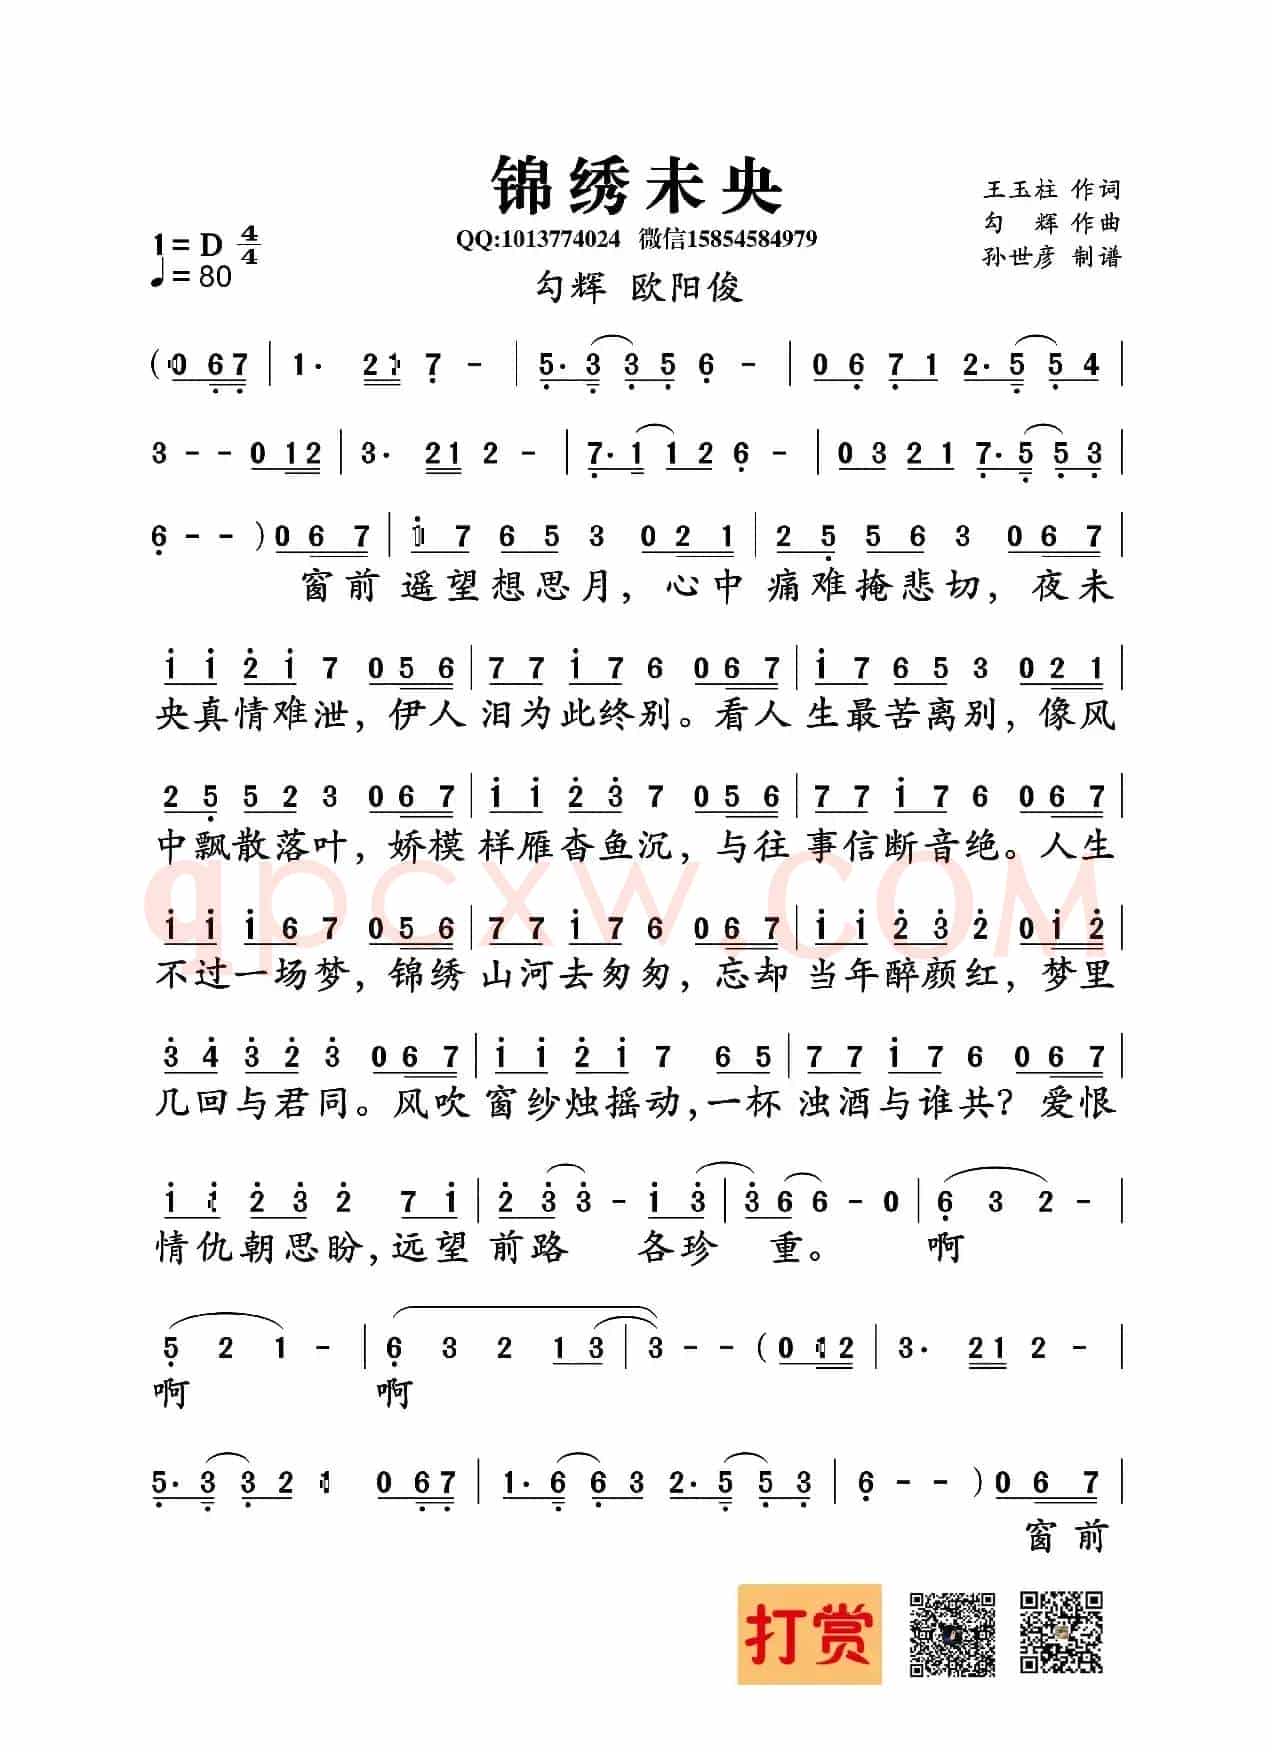 锦绣未央
王玉柱 作词
1=D 4/4
QQ:1013774024 微信15854584979
勾 辉 作曲
♩=80
勾辉 欧阳俊
孙世彦 制谱
(0 6 7 | 1· 2 1 7 - | 5· 3 3 5 6 - | 0 6 7 1 2· 5 5 4 |
3 - - 0 1 2 | 3· 2 1 2 - | 7· 1 1 2 6 - | 0 3 2 1 7· 5 5 3 |
6 - - ) 0 6 7 | 1 7 6 5 3 0 2 1 | 2 5 5 6 3 0 6 7 |
窗前 遥望想思月，心中 痛难掩悲切，夜未
1 1 2 1 7 0 5 6 | 7 7 1 7 6 0 6 7 | 1 7 6 5 3 0 2 1 |
央真情难泄，伊人 泪为此终别。看人生最苦离别，像风
2 5 5 2 3 0 6 7 | 1 1 2 3 7 0 5 6 | 7 7 1 7 6 0 6 7 |
中飘散落叶，娇模 样雁杳鱼沉，与往 事信断音绝。人生
qpcxw.COM
1 1 1 6 7 0 5 6 | 7 7 1 7 6 0 6 7 | 1 1 2 3 2 0 1 2 |
不过一场梦，锦绣 山河去匆匆，忘却 当年醉颜红，梦里
3 4 3 2 3 0 6 7 | 1 1 2 1 7 6 5 | 7 7 1 7 6 0 6 7 |
几回与君同。风吹 窗纱烛摇动，一杯 浊酒与谁共？爱恨
1 1 2 3 2 7 1 | 2 3 3 - 1 3 | 3 6 6 - 0 | 6 3 2 - |
情仇朝思盼，远望 前路 各珍 重。 啊
5 2 1 - | 6 3 2 1 3 | 3 - - (0 1 2 | 3· 2 1 2 - |
啊 啊
5· 3 3 2 1 0 6 7 | 1· 6 6 3 2· 5 5 3 | 6 - - ) 0 6 7 |
窗前
打赏